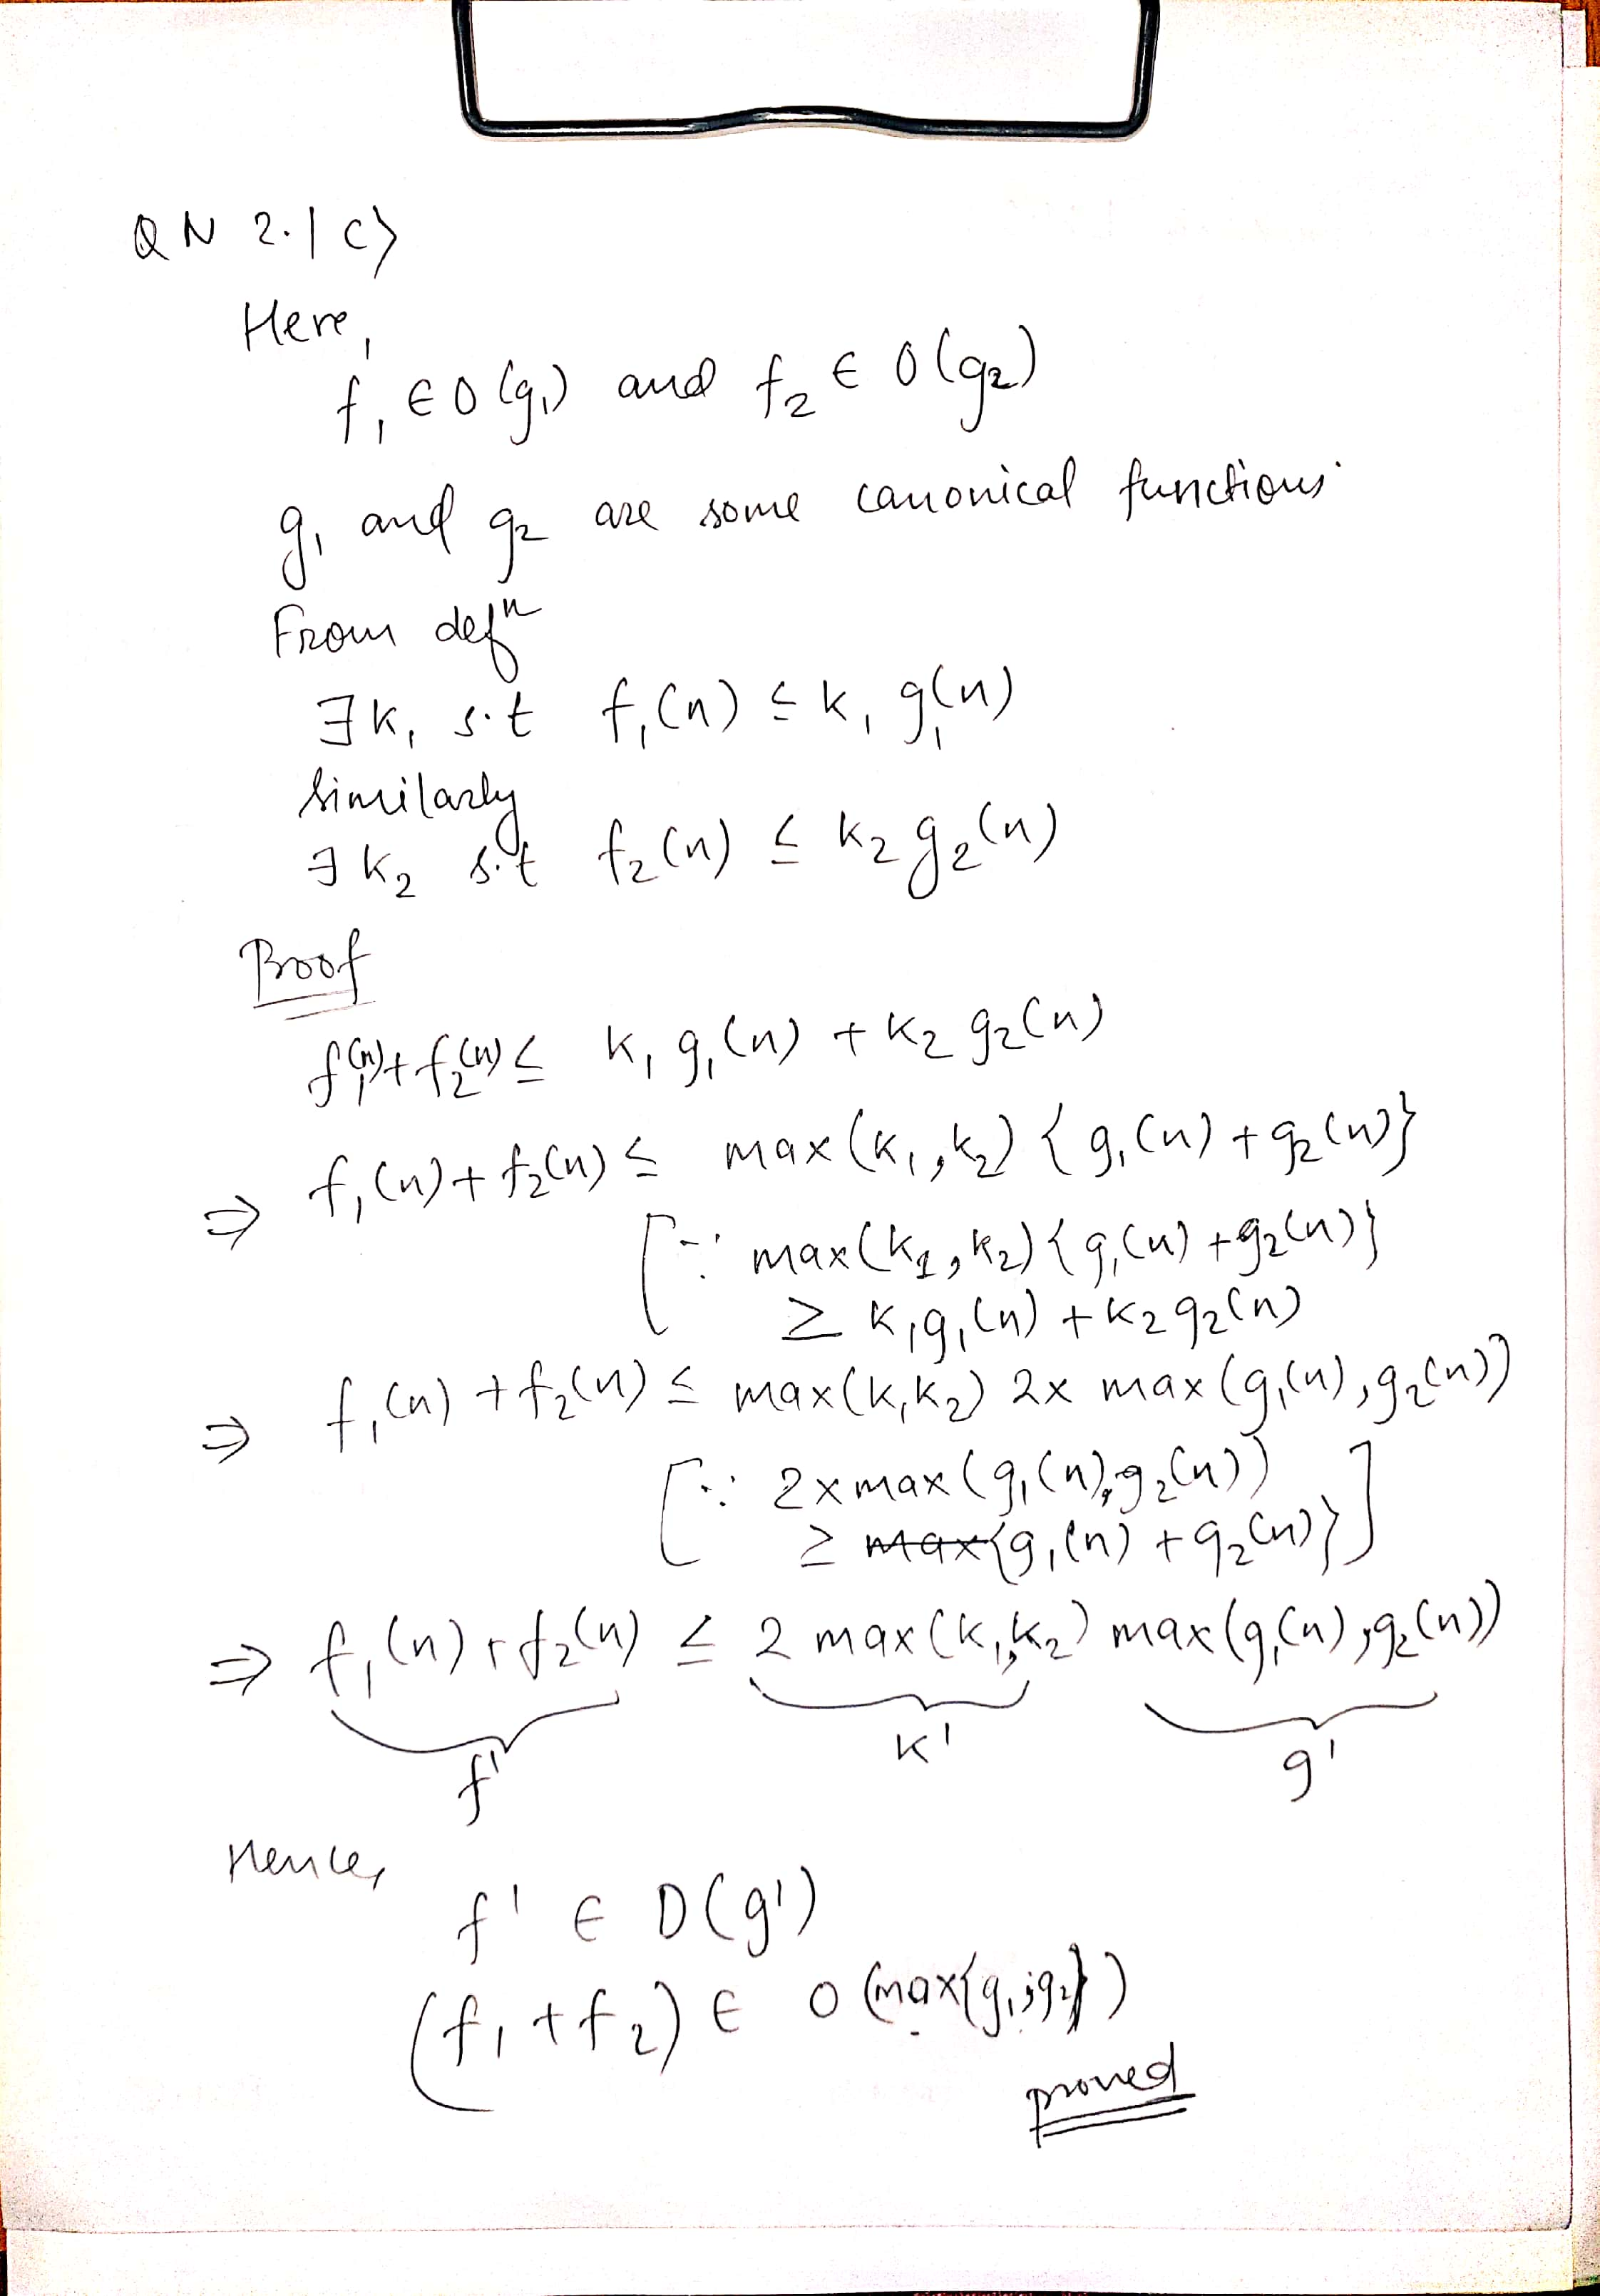 QN 2.1 c>
Here,
f₁ ∈ O(g₁) and f₂ ∈ O(g₂)
g₁ and g₂ are some canonical functions
From defⁿ
∃ k₁ s.t f₁(n) ≤ k₁ g₁(n)
Similarly
∃ k₂ s.t f₂(n) ≤ k₂ g₂(n)
Proof
f₁(n) + f₂(n) ≤ k₁ g₁(n) + k₂ g₂(n)
⇒ f₁(n) + f₂(n) ≤ max(k₁, k₂) { g₁(n) + g₂(n) }
[ ∵ max(k₁, k₂) { g₁(n) + g₂(n) }
≥ k₁g₁(n) + k₂g₂(n)
⇒ f₁(n) + f₂(n) ≤ max(k₁k₂) 2x max(g₁(n), g₂(n))
[ ∵ 2 x max(g₁(n), g₂(n))
≥ max{g₁(n) + g₂(n)} ]
⇒ f₁(n) + f₂(n) ≤ 2 max(k₁, k₂) max(g₁(n), g₂(n))
f' k' g'
Hence,
f' ∈ O(g')
(f₁ + f₂) ∈ O(max{g₁, g₂})
proved